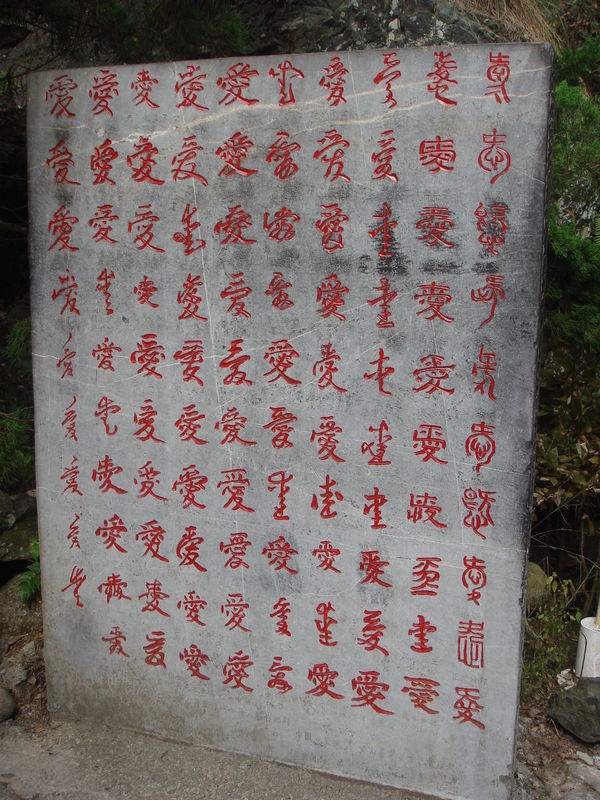 愛愛愛愛愛愛愛愛愛愛
愛愛愛愛愛愛愛愛愛愛
愛愛愛愛愛愛愛愛愛愛
愛愛愛愛愛愛愛愛愛愛
愛愛愛愛愛愛愛愛愛愛
愛愛愛愛愛愛愛愛愛愛
愛愛愛愛愛愛愛愛愛愛
愛愛愛愛愛愛愛愛愛愛
愛愛愛愛愛愛愛愛愛愛
愛愛愛愛愛愛愛愛愛